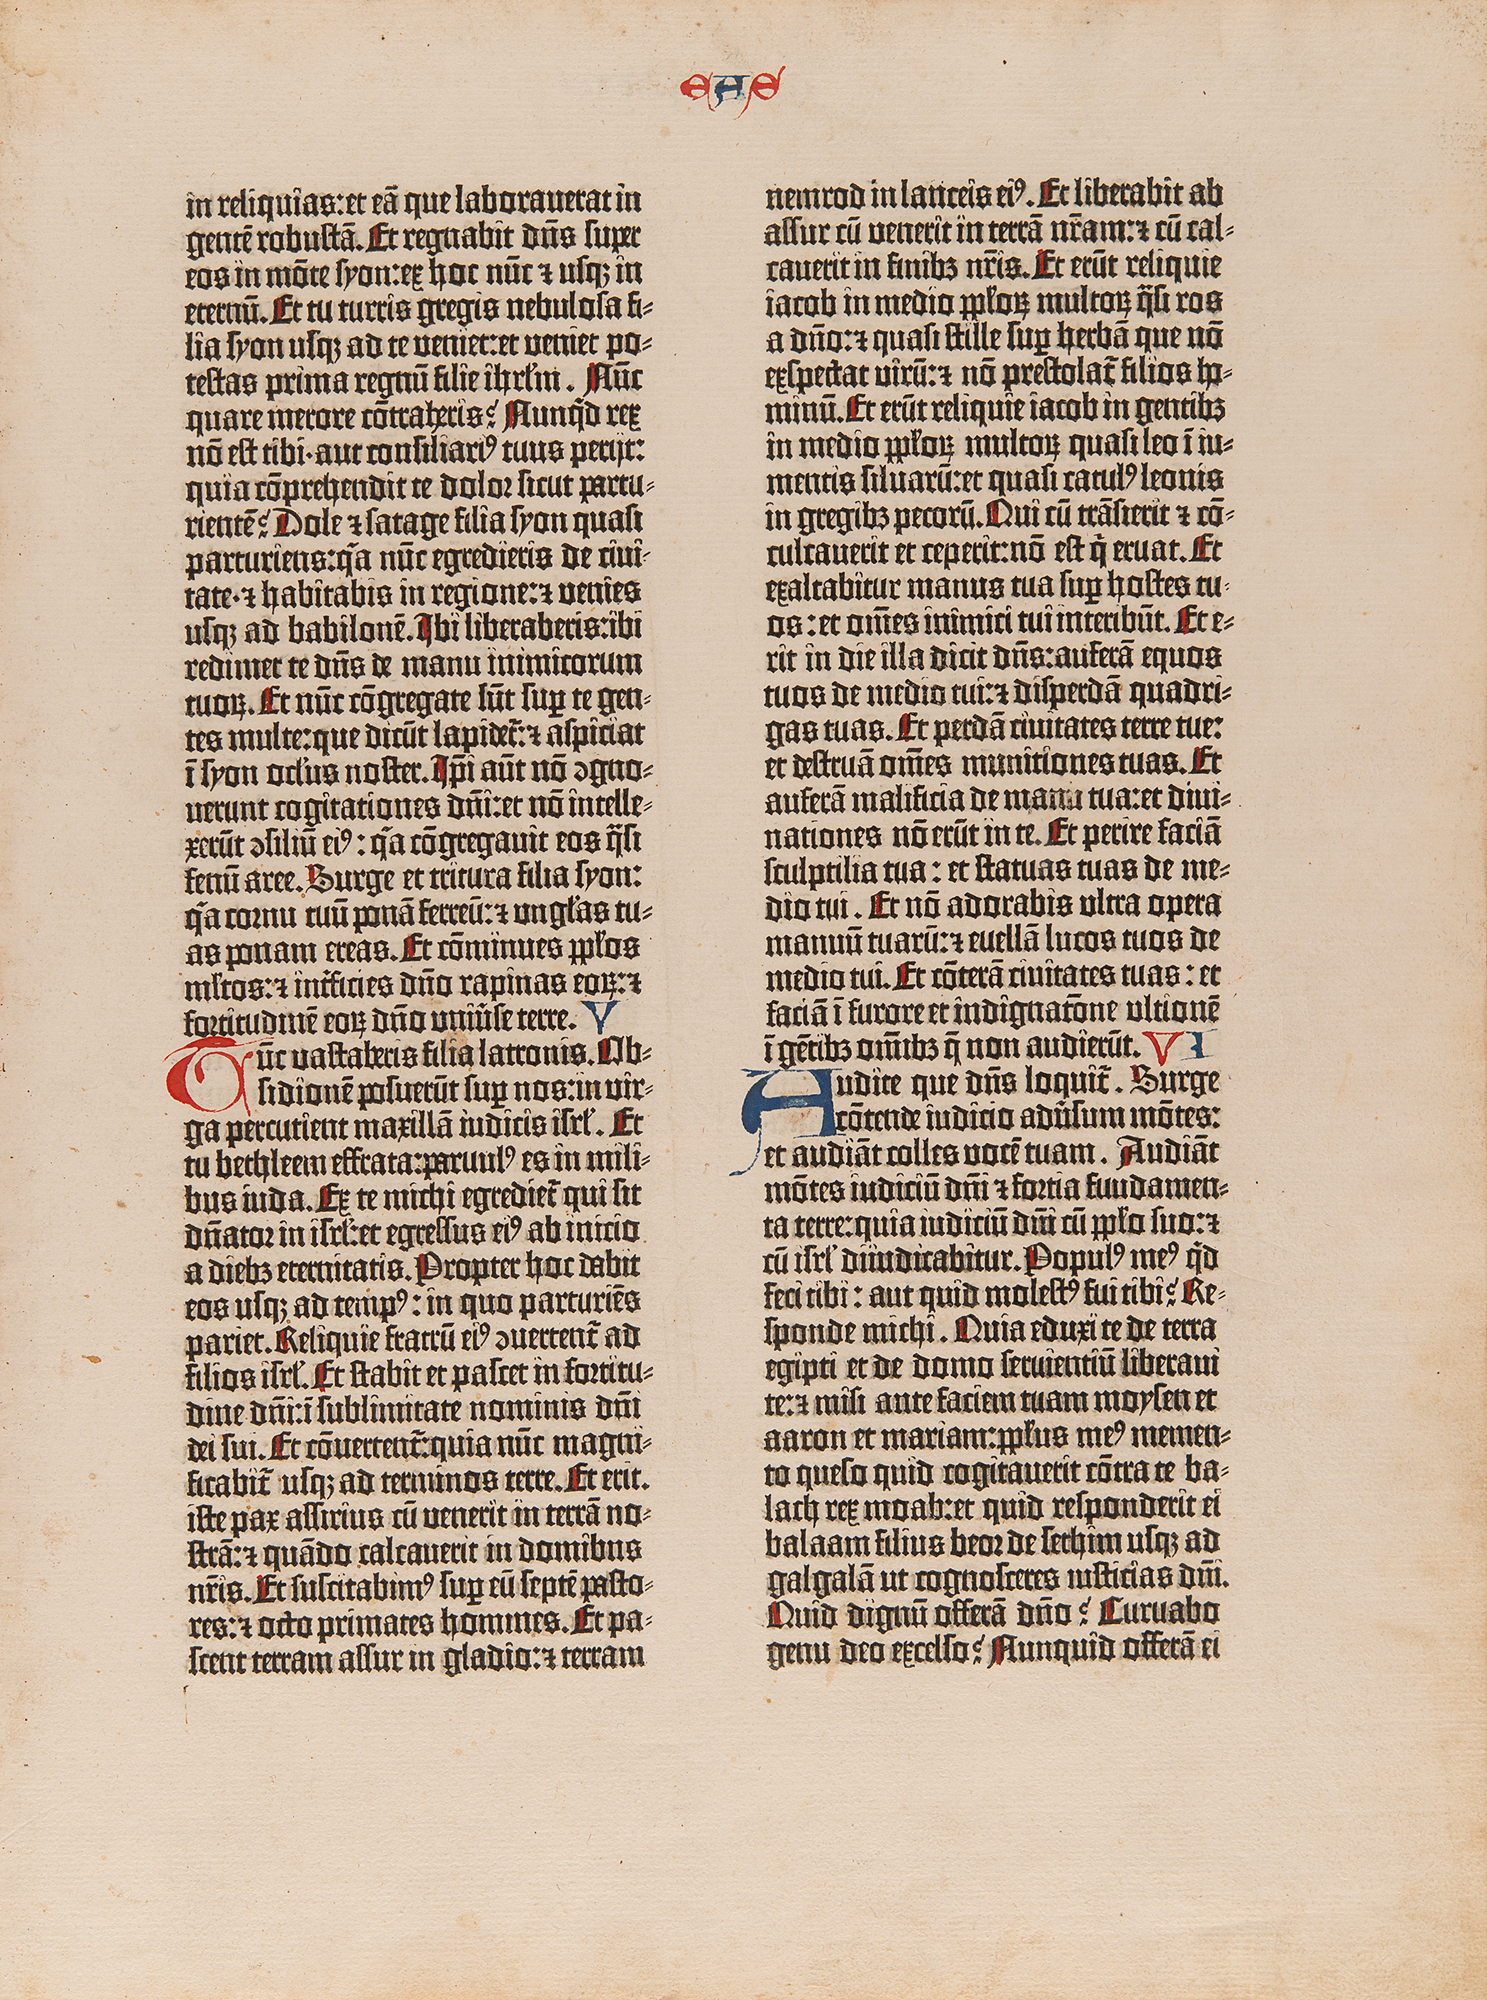 EAE
in reliquias:et eā que laborauerat in
gentē robustā. Et regnabit dn̄s super
eos in mōte syon:ex hoc nūc ⁊ usqꝫ in
eternū. Et tu turris gregis nebulosa fi-
lia syon usqꝫ ad te veniet:et veniet po-
testas prima regnū filie ihrlm̄. Nūc
quare merore cōtraheris? Nunqͥd rex
nō est tibi·aut consiliariꝰ tuus perijt:
quia cōprehendit te dolor sicut partu-
rientē? Dole ⁊ satage filia syon quasi
parturiens:qͥa nūc egredieris de ciui-
tate·⁊ habitabis in regione:⁊ venies
usqꝫ ad babilonē. Ibi liberaberis:ibi
redimet te dn̄s de manu inimicorum
tuoꝝ. Et nūc cōgregate sūt suꝑ te gen-
tes multe:que dicūt lapidet̄:⁊ aspiciat
ī syon oclʼus noster. Ip̄i aūt nō ꝯgno-
uerunt cogitationes dn̄i:et nō intelle-
xerūt ꝯsiliū eiꝰ: qͥa cōgregauit eos qͣsi
fenū aree. Surge et tritura filia syon:
qͥa cornu tuū ponā ferreū:⁊ unglʼas tu-
as ponam ereas. Et cōminues pplʼos
mlʼtos:⁊ int̄ficies dn̄o rapinas eoꝝ:⁊
fortitudinē eoꝝ dn̄o uniūse terre. V
Tūc vastaberis filia latronis. Ob-
sidionē posuerūt suꝑ nos:in vir-
ga percutient maxillā iudicis isrlʼ. Et
tu bethleem effrata:paruulꝰ es in mili-
bus iuda. Ex te michi egrediet̄ qui sit
dn̄ator in isrlʼ:et egressus eiꝰ ab inicio
a diebꝫ eternitatis. Propter hoc dabit
eos usqꝫ ad tempꝰ: in quo parturiēs
pariet. Reliquie fratrū eiꝰ ꝯuertent̄ ad
filios isrlʼ. Et stabit et pascet in fortitu-
dine dn̄i:ī sublimitate nominis dn̄i
dei sui. Et cōuertent̄:quia nūc magni-
ficabit̄ usqꝫ ad terminos terre. Et erit.
iste pax assirius cū venerit in terrā no-
strā:⁊ quādo calcauerit in domibus
nr̄is. Et suscitabimꝰ suꝑ eū septē pasto-
res:⁊ octo primates homines. Et pa-
scent terram assur in gladio:⁊ terram
nemrod in lanceis eiꝰ. Et liberabit ab
assur cū venerit in terrā nr̄am:⁊ cū cal-
cauerit in finibꝫ nr̄is. Et erūt reliquie
iacob in medio pplʼoꝝ multoꝝ qͣsi ros
a dn̄o:⁊ quasi stille suꝑ herbā que nō
exspectat virū:⁊ nō prestolat̄ filios ho-
minū. Et erūt reliquie iacob in gentibꝫ
in medio pplʼoꝝ multoꝝ quasi leo ī iu-
mentis siluarū:et quasi catulꝰ leonis
in gregibꝫ pecorū. Qui cū trāsierit ⁊ cō-
culcauerit et ceperit:nō est qͥ eruat. Et
exaltabitur manus tua suꝑ hostes tu-
os:et om̄es inimici tui interibūt. Et e-
rit in die illa dicit dn̄s:auferā equos
tuos de medio tui:⁊ disperdā quadri-
gas tuas. Et perdā ciuitates terre tue:
et destruā om̄es munitiones tuas. Et
auferā malificia de manu tua:et diui-
nationes nō erūt in te. Et perire faciā
sculptilia tua: et statuas tuas de me-
dio tui. Et nō adorabis ultra opera
manuū tuarū:⁊ euellā lucos tuos de
medio tui. Et cōterā ciuitates tuas: et
faciā ī furore et indignatōne ultionē
ī gētibꝫ om̄ibꝫ q̄ non audierūt. VI
Audite que dn̄s loquit̄. Surge
cōtende iudicio adūsum mōtes:
et audiāt colles vocē tuam. Audiāt
mōtes iudiciū dn̄i ⁊ fortia fundamen-
ta terre:quia iudiciū dn̄i cū pplʼo suo:⁊
cū isrlʼ diiudicabitur. Populꝰ meꝰ qͥd
feci tibi: aut quid molestꝰ fui tibi? Re-
sponde michi. Quia eduxi te de terra
egipti et de domo seruientiū liberaui
te:⁊ misi ante faciem tuam moysen et
aaron et mariam:pplʼus meꝰ memen-
to queso quid cogitauerit cōtra te ba-
lach rex moab:et quid responderit ei
balaam filius beor de sethim usqꝫ ad
galgalā ut cognosceres iusticias dn̄i.
Quid dignū offerā dn̄o? Curuabo
genu deo excelso? Nunquid offerā ei